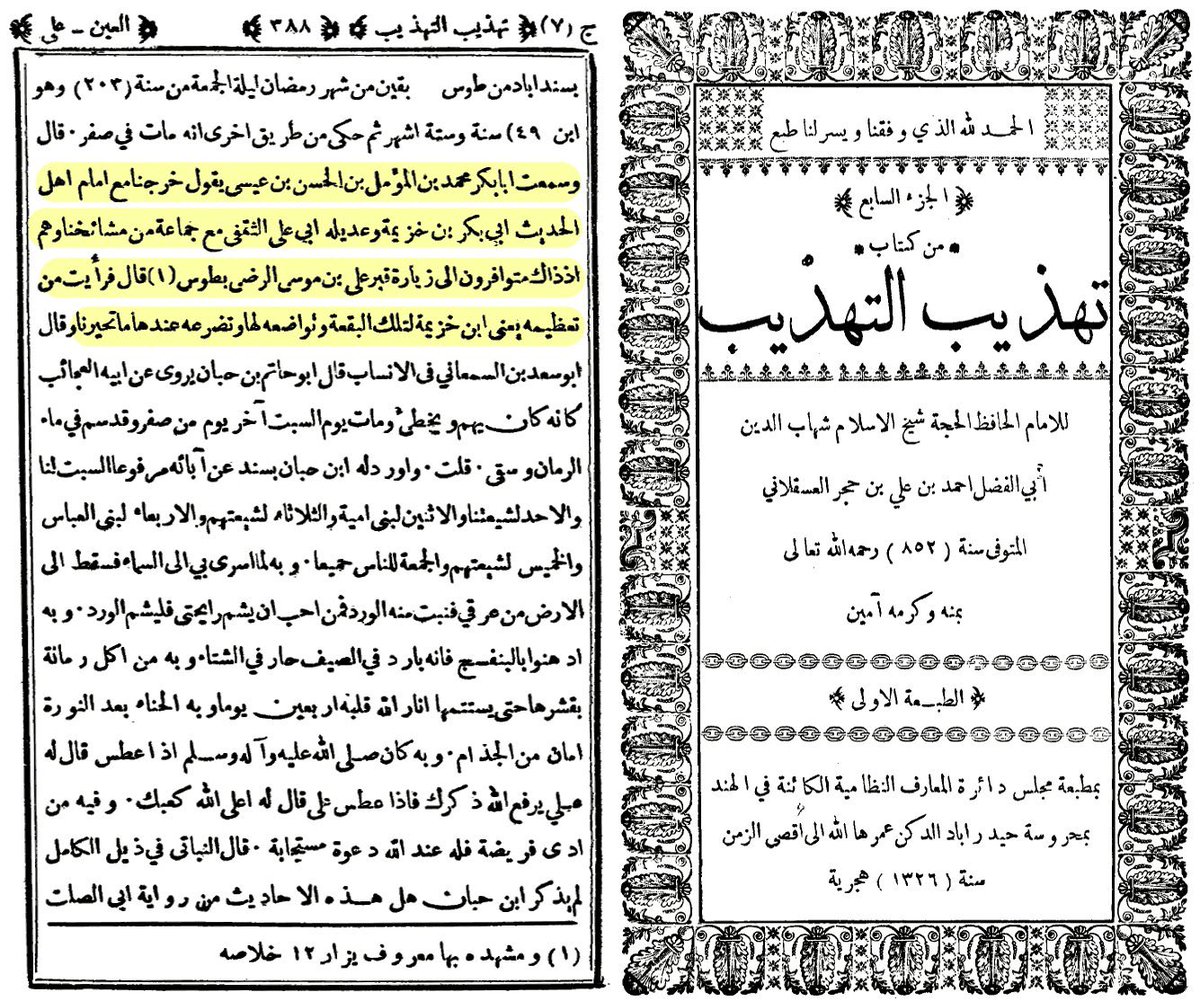 الحمد لله الذي وفقنا ويسر لنا طبع
الجزء السابع
من كتاب
تهذيب التهذيب
للامام الحافظ الحجة شيخ الاسلام شهاب الدين
أبي الفضل احمد بن علي بن حجر العسقلاني
المتوفى سنة (٨٥٢) رحمه الله تعالى
بمنه وكرمه آمين
الطبعة الاولى
بمطبعة مجلس دائرة المعارف النظامية الكائنة في الهند
بمحروسة حيدراباد الدكن عمرها الله الى أقصى الزمن
سنة (١٣٢٦) هجرية
ج (٧) تهذيب التهذيب ٣٨٨ العين - على
بسنداباد من طوس بقين من شهر رمضان ليلة الجمعة من سنة (٢٠٣) وهو
ابن ٤٩) سنة وستة اشهر ثم حكى من طريق اخرى انه مات في صفر ٠ قال
وسمعت ابا بكر محمد بن المؤمل بن الحسن بن عيسى يقول خرجنا مع امام اهل
الحديث ابي بكر بن خزيمة وعديله ابي على الثقفى مع جماعة من مشائخنا وهم
اذ ذاك متوافرون الى زيارة قبر على بن موسى الرضى بطوس (١) قال فرأيت من
تعظيمه يعنى ابن خزيمة لتلك البقعة وتواضعه لها وتضرعه عندها ما تحيرنا وقال
ابو سعد بن السمعاني فى الانساب قال ابو حاتم بن حبان يروى عن ابيه العجائب
كانه كان يهم ويخطئ ومات يوم السبت آخر يوم من صفر وقد سم في ماء
الرمان وسقى ٠ قلت ٠ واورد له ابن حبان بسند عن آبائه مرفوعا السبت لنا
والاحد لشيعتنا والاثنين لبنى امية والثلاثاء لشيعتهم والاربعاء لبنى العباس
والخميس لشيعتهم والجمعة للناس جميعا ٠ وبه لما اسرى بي الى السماء فسقط الى
الارض من عرقي فنبت منه الورد فمن احب ان يشم رايحتى فليشم الورد ٠ وبه
ادهنوا بالبنفسج فانه بارد في الصيف حار في الشتاء وبه من اكل رمانة
بقشرها حتى يستتمها انار الله قلبه اربعين يوما وبه الحناء بعد النورة
امان من الجذام ٠ وبه كان صلى الله عليه وآله وسلم اذا عطس قال له
على يرفع الله ذكرك فاذا عطس على قال له اعلى الله كعبك ٠ وفيه من
ادى فريضة فله عند الله دعوة مستجابة ٠ قال النباتى في ذيل الكامل
لم يذكر ابن حبان هل هذه الاحاديث من رواية ابى الصلت
(١) ومشهده بها معروف يزار ١٢ خلاصه